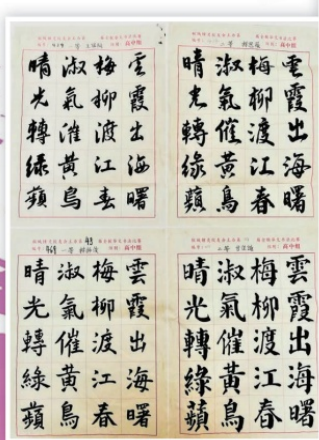 高中組
雲霞出海曙
梅柳渡江春
淑氣催黃鳥
晴光轉綠蘋
高中組
雲霞出海曙
梅柳渡江春
淑氣催黃鳥
晴光轉綠蘋
高中組
雲霞出海曙
梅柳渡江春
淑氣催黃鳥
晴光轉綠蘋
高中組
雲霞出海曙
梅柳渡江春
淑氣催黃鳥
晴光轉綠蘋